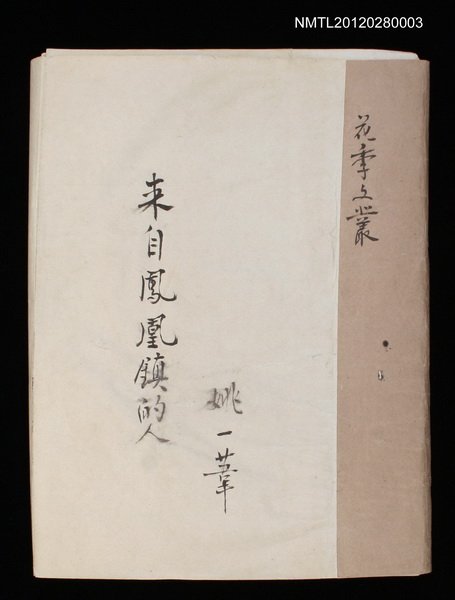 NMTL20120280003
花季文叢
姚一葦
来自鳳凰鎮的人